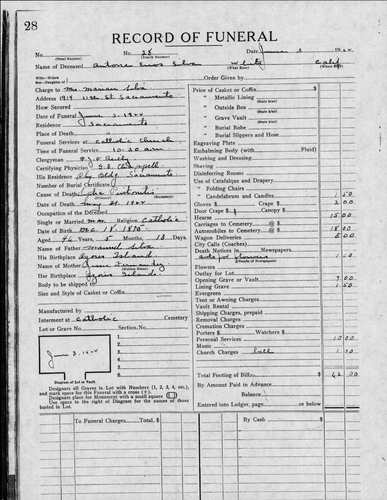 28
RECORD OF FUNERAL
No. No. 28 Date June 3 1922
(Total Number) (Yearly Number)
Name of Deceased Antone Enos Silva White Calif
(What Race) (Where Born)
Order Given by
Charge to Mrs. Marian Silva
Address 1919 11th St. Sacramento
How Secured
Date of Funeral June 3, 1922
Residence Sacramento
Place of Death
Funeral Services at Catholic Church
Time of Funeral Service 10:30 am
Clergyman
Certifying Physician
His Residence Bldg. Sacramento
Number of Burial Certificate
Cause of Death
Date of Death May 31, 1922
Occupation of the Deceased
Single or Married Religion Catholic
Date of Birth Dec 18, 1875
Aged 46 Years 5 Months 13 Days
Name of Father Manuel Silva
His Birthplace Azores Island
Name of Mother
(Maiden Name)
Her Birthplace Azores Islands
Body to be shipped to
Size and Style of Casket or Coffin
Manufactured by
Interment at Catholic Cemetery
Lot or Grave No. Section No.
June 3, 1922
1.
2.
3.
4.
5.
6.
Diagram of Lot or Vault
Designate all Graves in Lot with Numbers (1, 2, 3, 4, etc.),
and mark space for this Funeral with a cross (+).
Designate place for Monument with a small square
Use space to the right of Diagram for the names of those
buried in Lot.
Price of Casket or Coffin
" Metallic Lining
" Outside Box
" Grave Vault
" Burial Robe
" Burial Slippers and Hose
Engraving Plate
Embalming Body (with Fluid)
Washing and Dressing
Shaving
Disinfecting Rooms
Use of Catafalque and Drapery
" Folding Chairs
" Candelabrum and Candles 1 50
Gloves $ Crape $ 2 00
Door Crape $ Canopy $
Hearse 15 00
Carriages to Cemetery @ $
Automobiles to Cemetery @ $ 18 00
Wagon Deliveries 5 00
City Calls (Coaches)
Death Notices in Newspapers
(Names of Newspapers)
Flowers
Outlay for Lot
Opening Grave or Vault 7 00
Lining Grave 1 50
Evergreen
Tent or Awning Charges
Vault Rental
Shipping Charges, prepaid
Removal Charges
Cremation Charges
Porters $ Watchers $
Personal Services 10 00
Music
Church Charges bell 1 00
Total Footing of Bill 62 00
By Amount Paid in Advance
Balance
Entered into Ledger, page or below.
To Funeral Charges, Total $ By Cash $